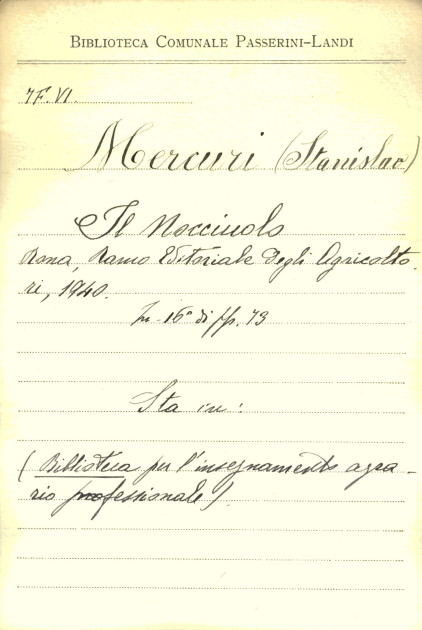 BIBLIOTECA COMUNALE PASSERINI-LANDI
7F.VI.
Mercuri (Stanislao)
Il Nocciuolo
Roma, Ramo Editoriale degli Agricolto
ri, 1940.
In-16° di pp. 73
Sta in:
(Biblioteca per l'insegnamento agra-
rio professionale).